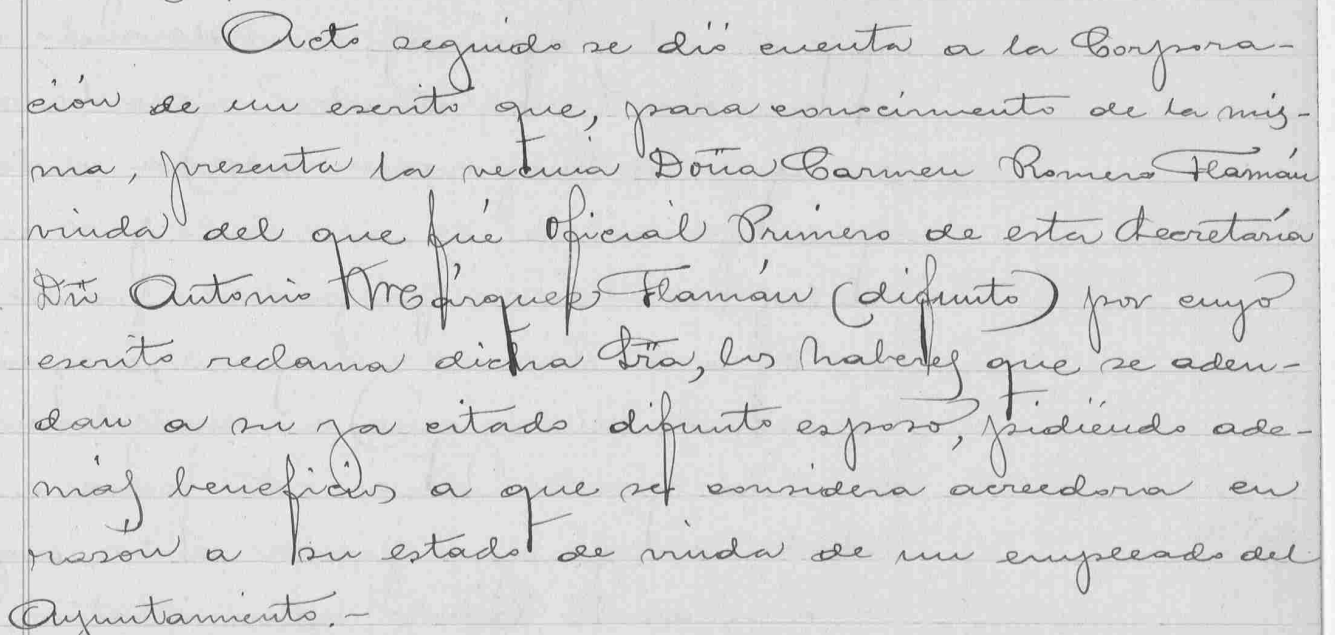 Acto seguido se dió cuenta a la Corpora-
ción de un escrito que, para conocimiento de la mis-
ma, presenta la vecina Doña Carmen Romero Flamán
viuda del que fué Oficial Primero de esta Secretaría
Dn Antonio Márquez Flamán (difunto) por cuyo
escrito reclama dicha Sra, los haberes que se adeu-
dan a su ya citado difunto esposo, pidiéndo ade-
más beneficios a que se considera acreedora en
rasón a su estado de viuda de un empleado del
Ayuntamiento.-